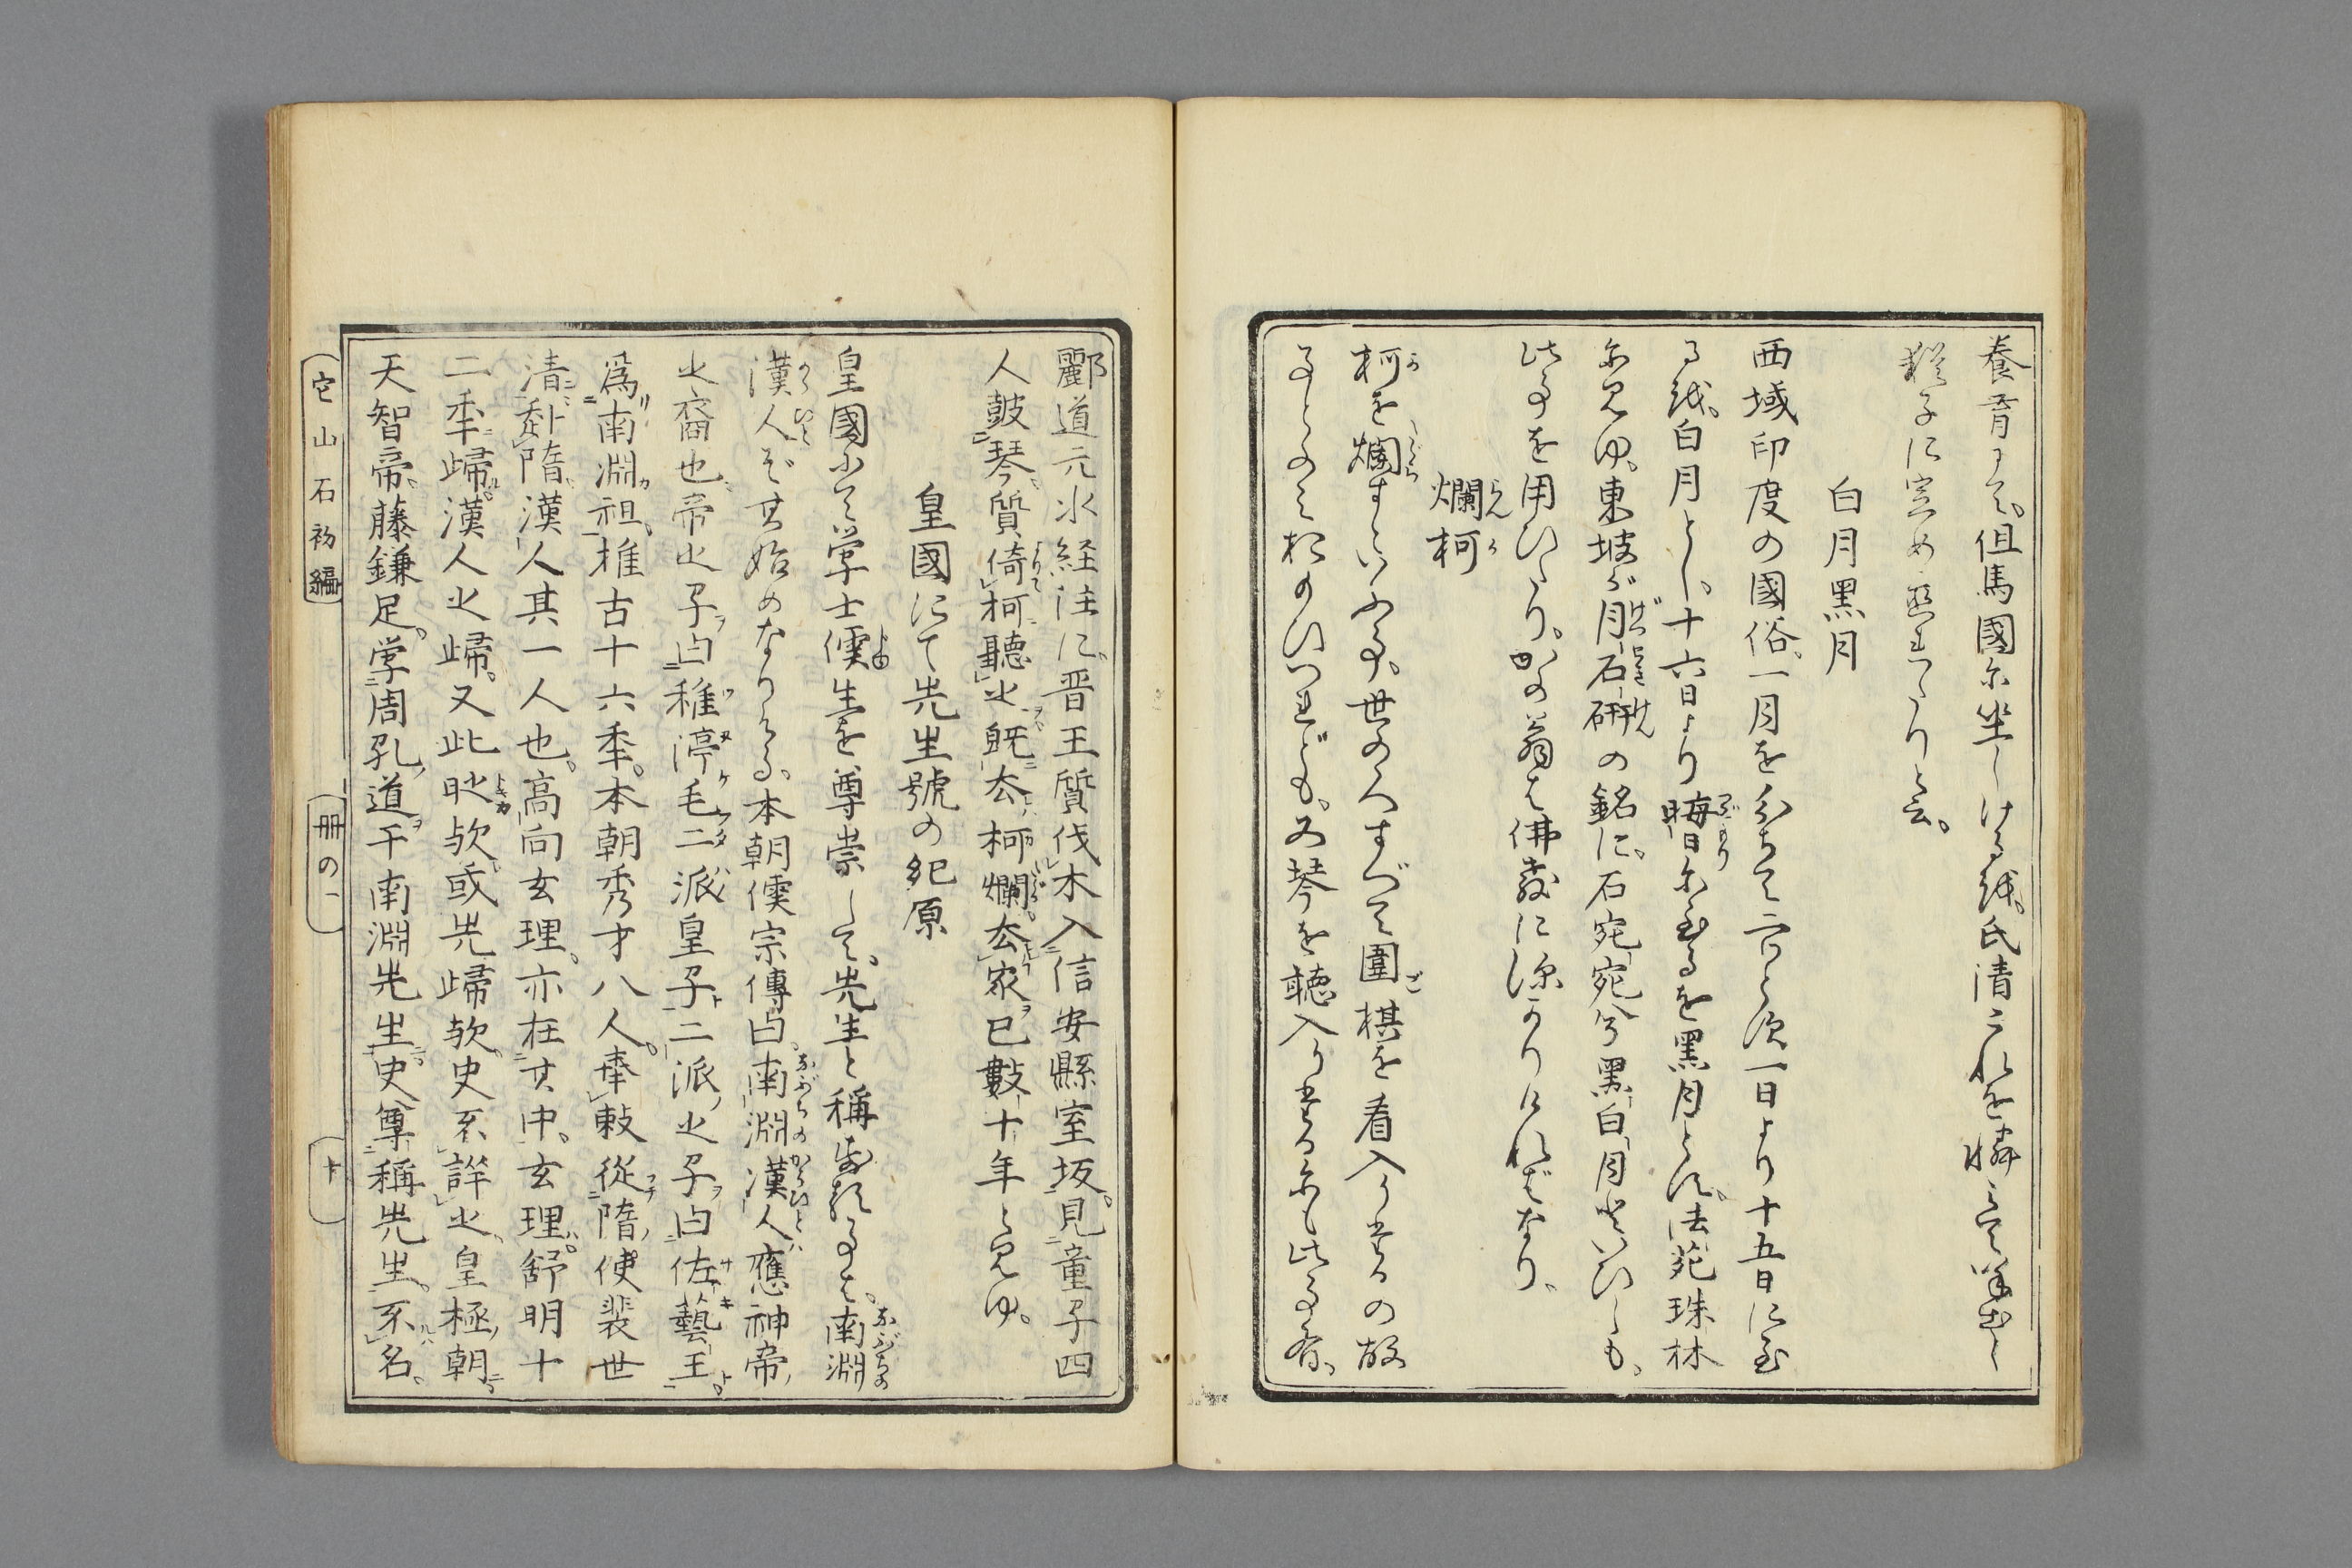 養育して。但馬國尓坐しける越。氏清これを憐
猶子に定め
白月黒月
西域印度の國俗。一月を分ちて二つとす。一日より十五日に至
る越。白月とし。十六日より晦日尓至るを黒月とす。法苑珠林
尓見ゆ。東坡が月石硏の銘に。石宛宛兮黒白月といひしも。
此事を用ひたり。かの翁は佛教に深かりければなり。
爛柯
柯を爛すといふ事。世の人すべて圍棋を看入りたるの故
事とのみおもひつれども。又琴を聴入りたる尓も此事有。
酈道元水経注に。晋王質伐木入信安縣室坂。見童子四
人鼓琴。質倚柯聽之。既去。柯爛。去家已數十年と見ゆ。
皇國にて先生號の紀原
皇國にて学士儒生を尊崇して。先生と稱する事は。南淵
漢人ぞ其始めなりける。本朝儒宗傳曰。南淵漢人應神帝
之裔也。帝之子曰稚渟毛二派皇子。二派之子曰佐藝王。
爲南淵祖。推古十六秊。本朝秀才八人。奉敕從隋使裴世
清赴隋。漢人其一人也。高向玄理。亦在其中。玄理。舒明十
二秊歸。漢人之歸。又此時欤。或先歸欤。史不詳之。皇極朝。
天智帝。藤鎌足。学周孔道于南淵先生。史尊稱先生。不名。
它山石初編
冊の一
十